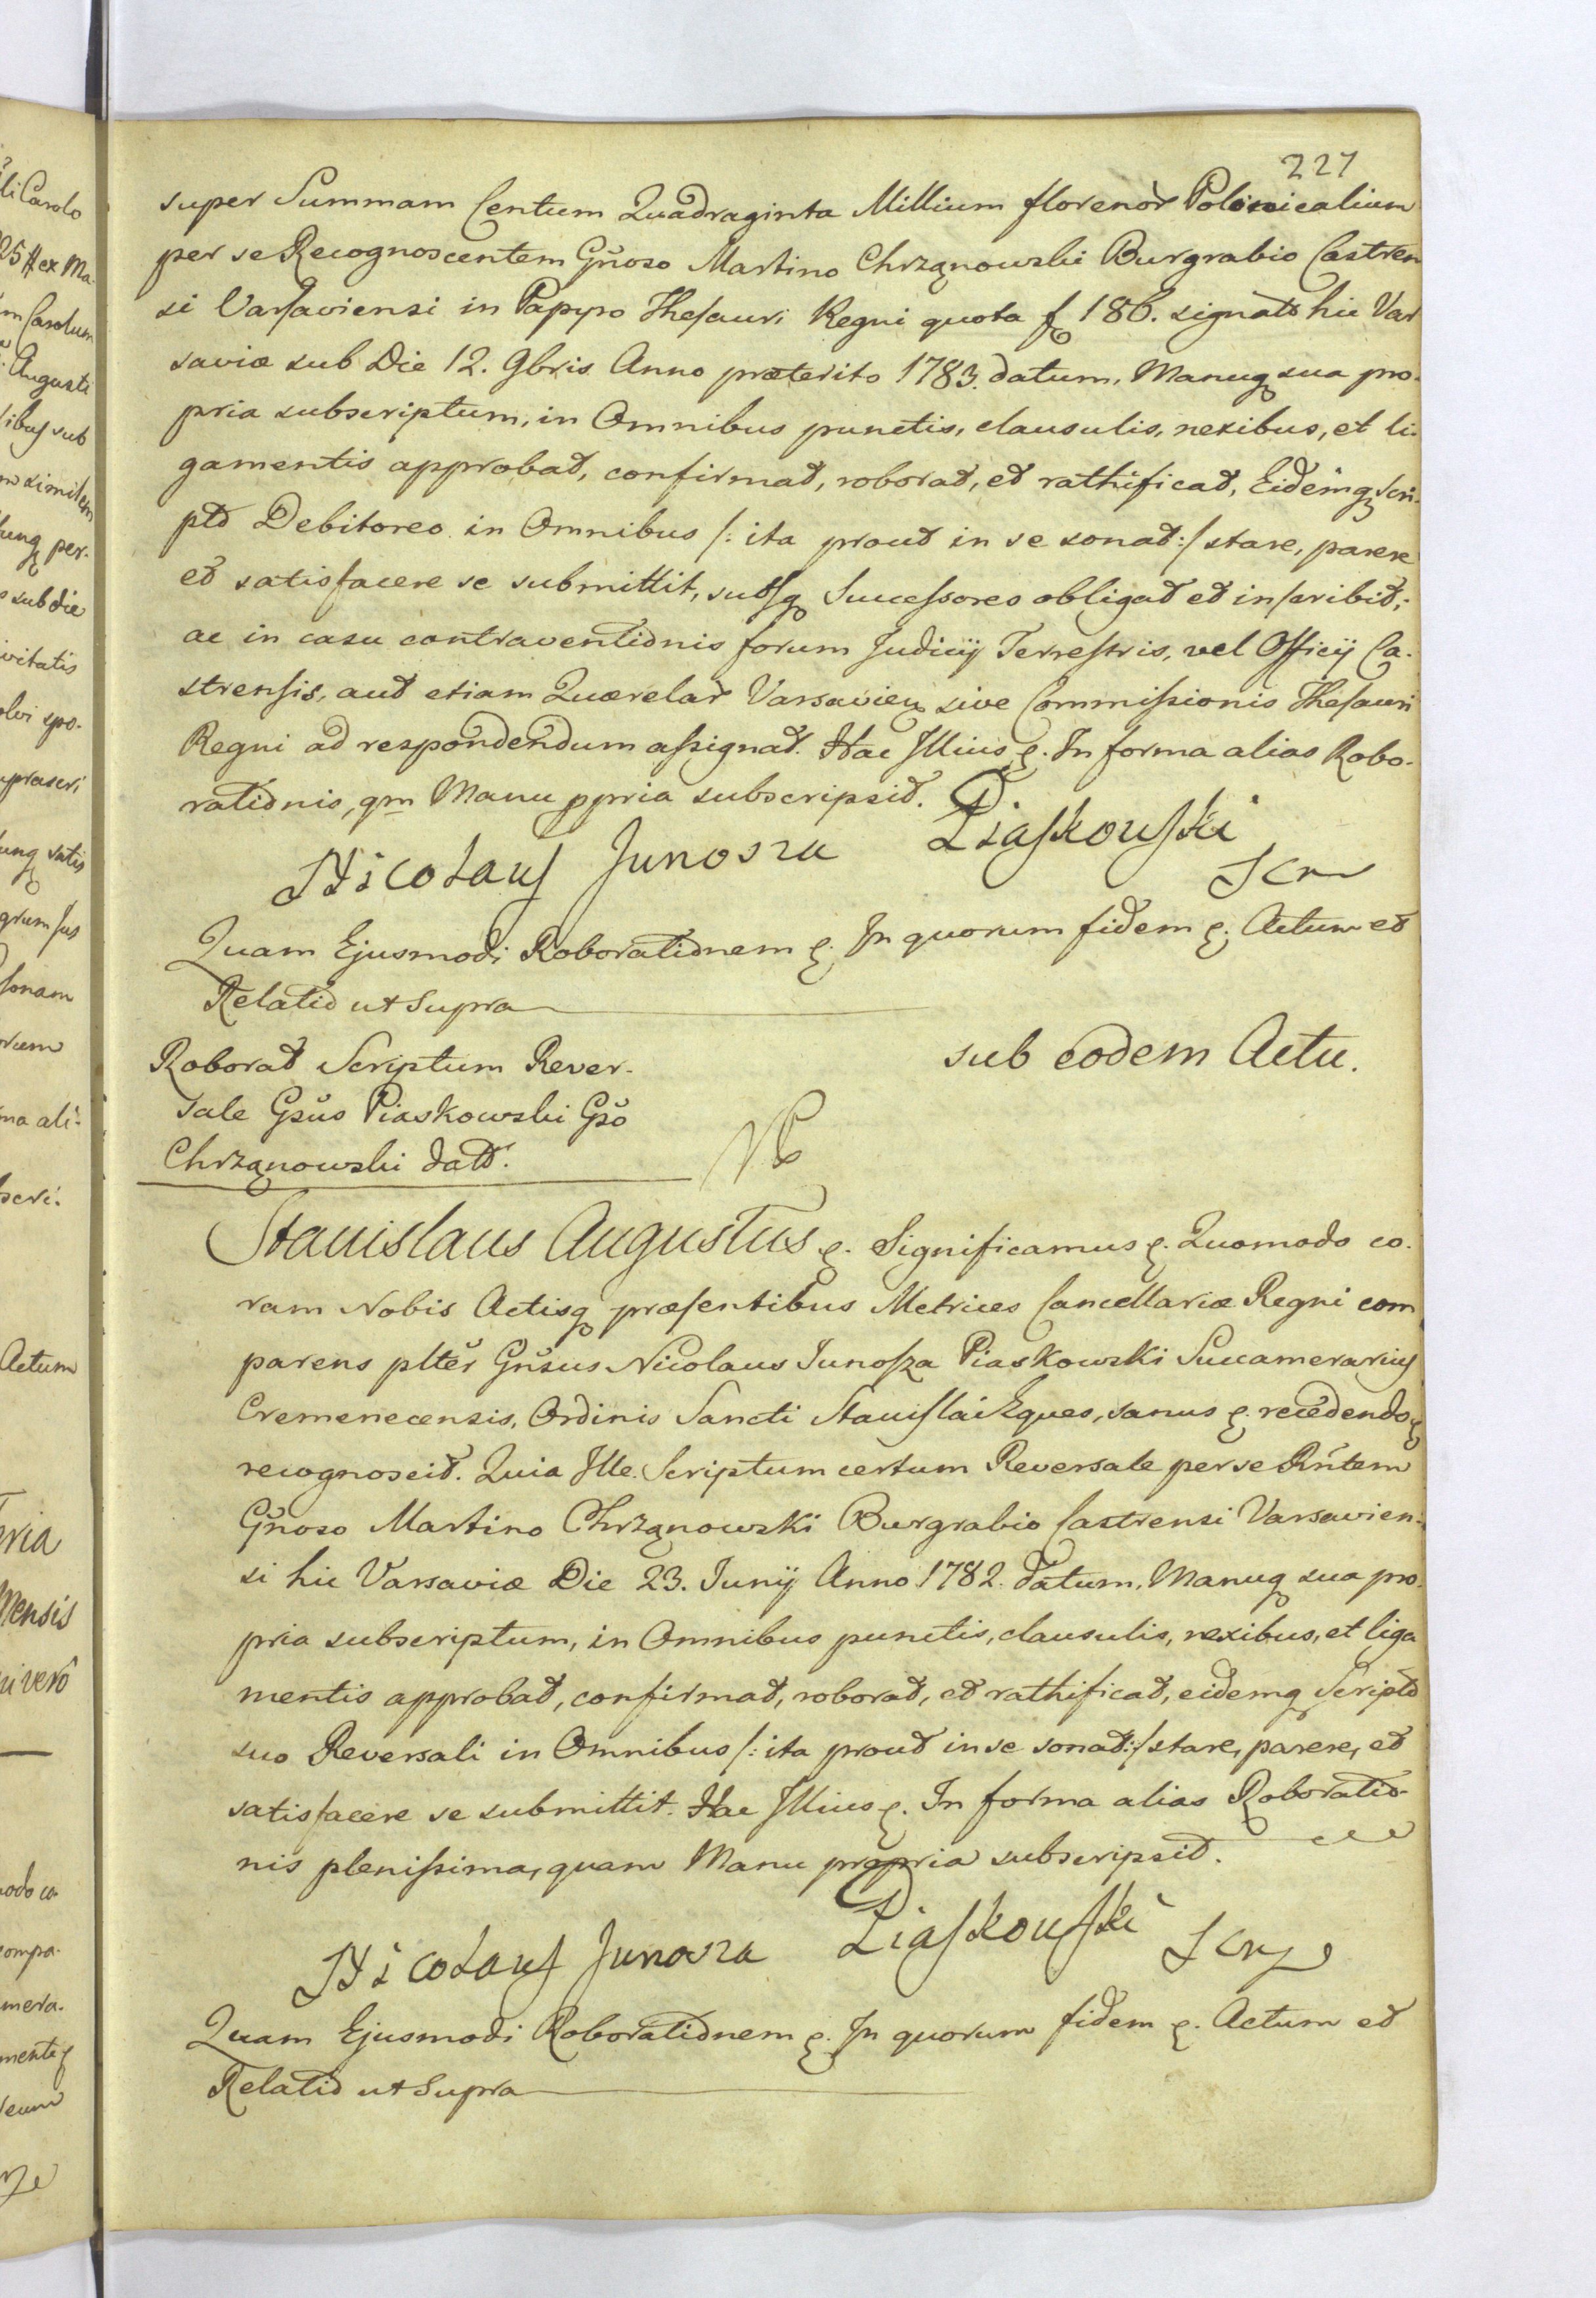 227
super Summam Centum Quadraginta Millium florenor Polonicalium
per se Recognoscentem Gnoso Martino Chrząnowski Burgrabio Castren
si Varsaviensi in Papyro Thesauri Regni quota f 186. signato hic Var
saviæ sub Die 12. 9bris Anno præterito 1783. datum, Manuq sua pro-
pria subscriptum, in Omnibus punctis, clausulis, nexibus, et li-
gamentis approbat, confirmat, roborat, et rathificat, Eidemq Scri-
pto Debitoreo in Omnibus /: ita prout in se sonat :/ stare, parere
et satisfacere se submittit, suosq Successores obligat et inscribit,
ac in casu contraventionis forum Judicij Terrestris, vel Officij Ca-
strensis, aut etiam Quærelar Varsavien sive Commissionis Thesauri
Regni ad respondendum assignat. Hac Illius &. In forma alias Robo-
rationis, qm Manu ppria subscripsit.
Nicolaus Junosza Piaskowski
Quam Ejusmodi Roborationem &. In quorum fidem &. Actum et
Relatio ut Supra
sub eodem Actu.
Roborat Scriptum Rever-
sale Gsus Piaskowski Gso
Chrząnowski dato.
Stanislaus Augustus &. Significamus &. Quomodo co-
ram Nobis Actisq præsentibus Metrices Cancellariæ Regni com
parens plter Gnsus Nicolaus Junosza Piaskowski Succamerarius
Cremenecensis, Ordinis Sancti Stanislai Eques, sanus &. recedendo &
recognoscit. Quia Ille Scriptum certum Reversale per se Rntem
Gnoso Martino Chrząnowski Burgrabio Castrensi Varsavien-
si hic Varsaviæ Die 23. Junij Anno 1782. datum, Manuq sua pro-
pria subscriptum, in Omnibus punctis, clausulis, nexibus, et liga
mentis approbat, confirmat, roborat, et rathificat, eidemq Scripto
suo Reversali in Omnibus /: ita prout in se sonat :/ stare, parere, et
satisfacere se submittit. Hac Illius &. In forma alias Roboratio-
nis plenissima, quam Manu propria subscripsit.
Nicolaus Junosza Piaskowski
Quam Ejusmodi Roborationem &. In quorum fidem &. Actum et
Relatio ut Supra